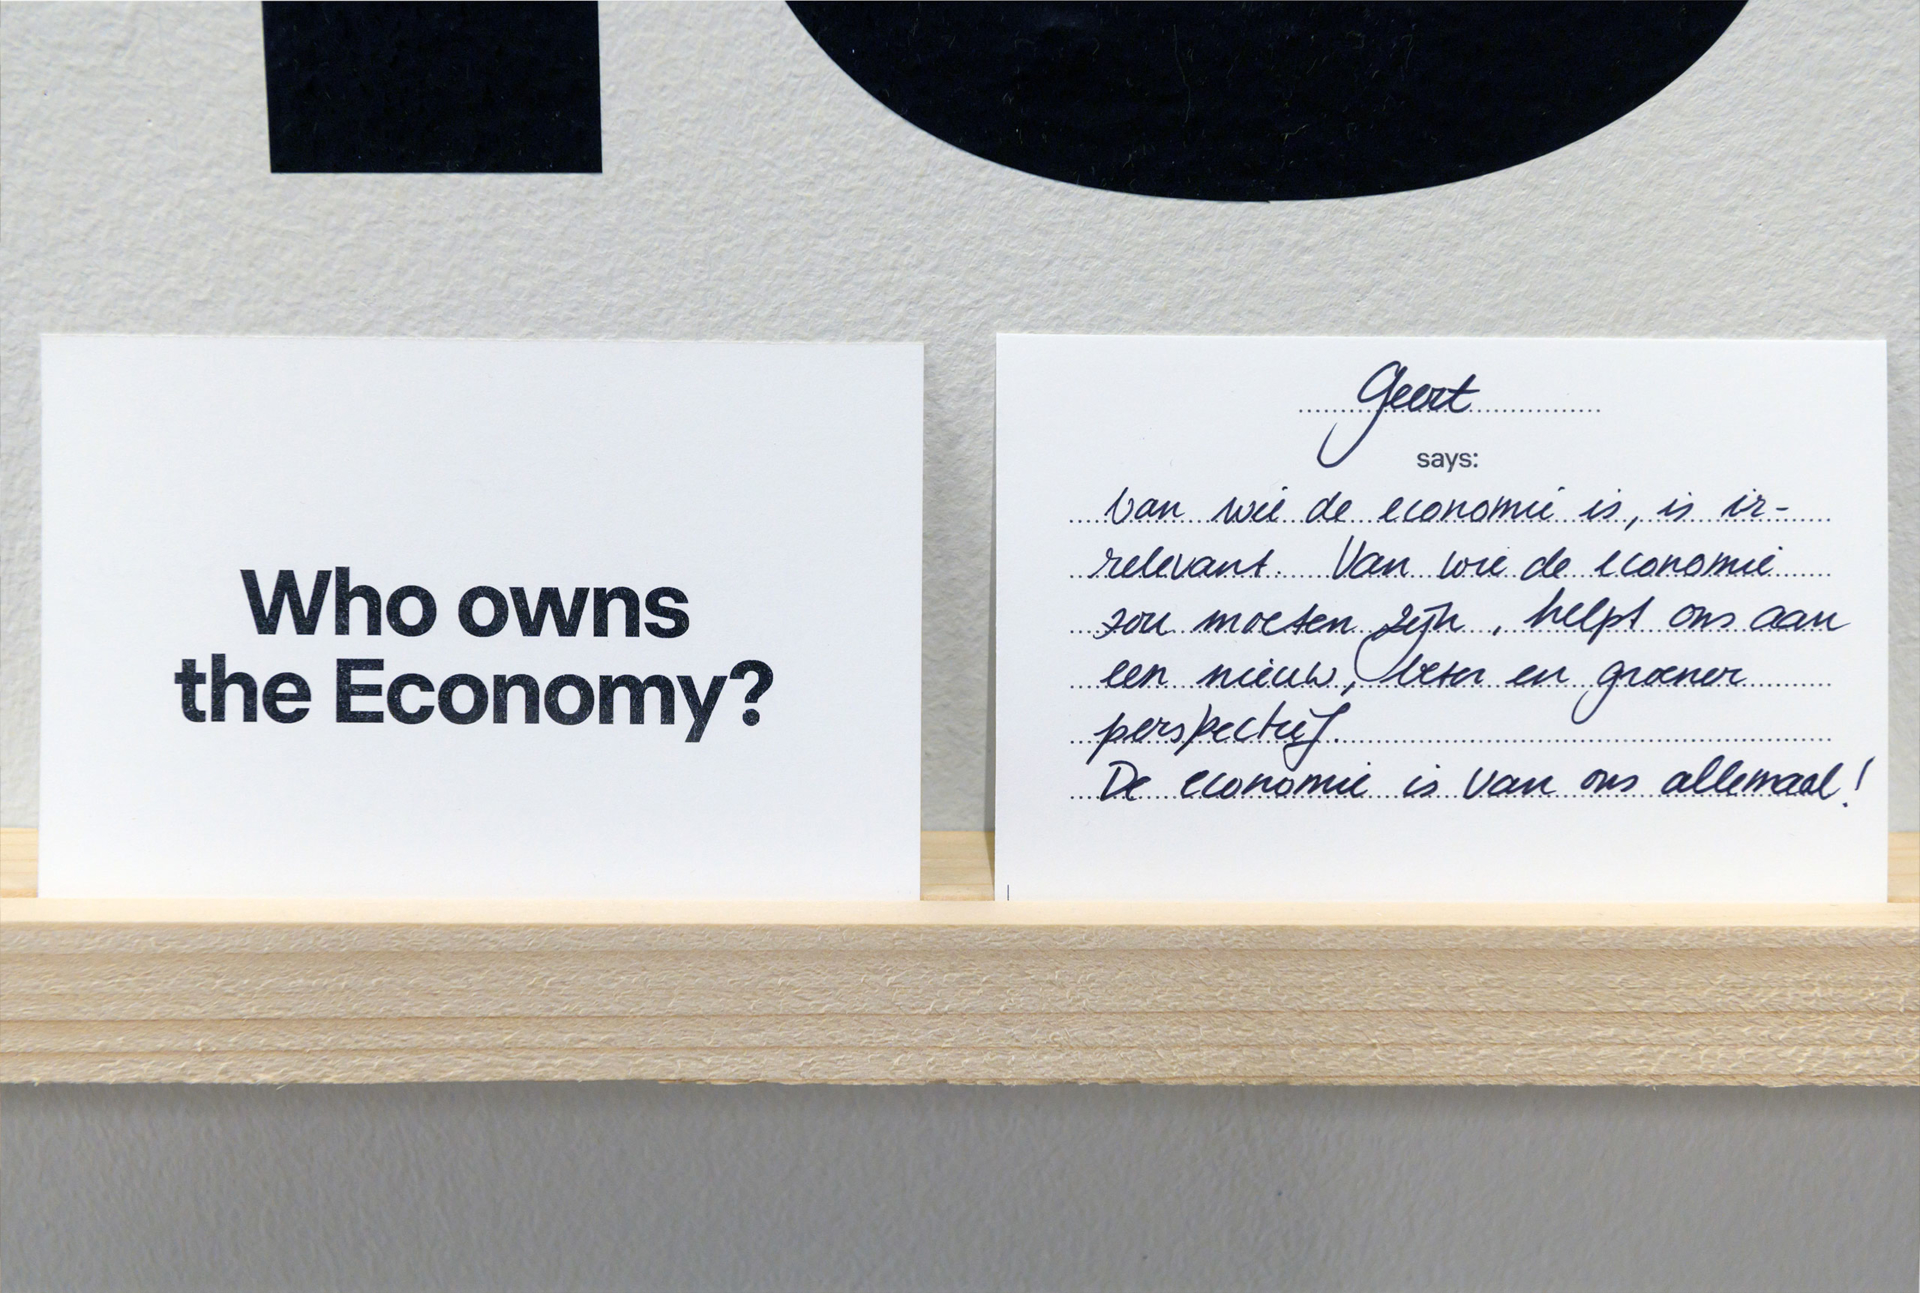 Who owns
the Economy?
Geert
says:
Van wie de economie is, is ir-
relevant. Van wie de economie
zou moeten zijn, helpt ons aan
een nieuw, beter en groener
perspectief.
De economie is van ons allemaal!